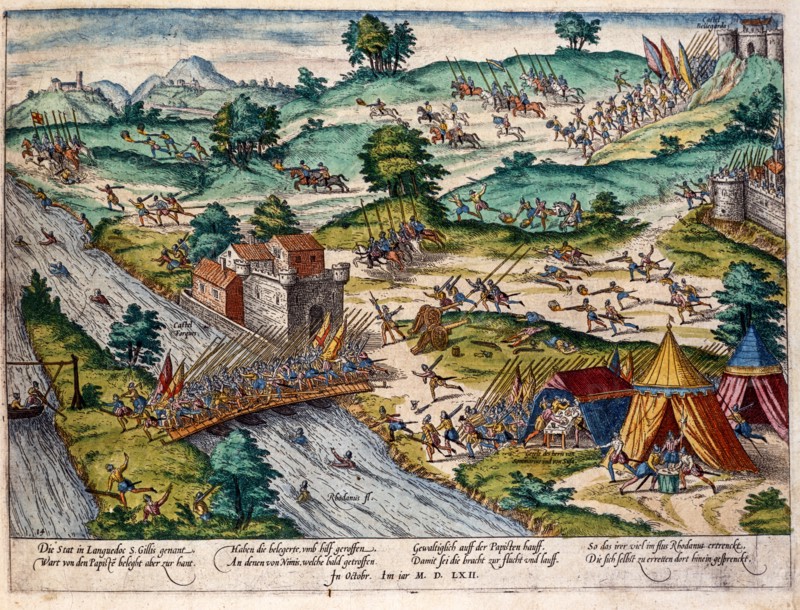 Castel
Bellegarde
Castel
Forques
Rhodanus fl.
14
Die Stat in Languedoc S. Gillis genant
Wart von den Papistē beleght aber zur hant.
Haben die belegerte, vmb hilf geroffen
An denen von Nimis, welche bald getroffen
Gewaltiglich auff der Papisten hauff.
Damit sei die bracht zur flucht vnd lauff.
So das irer viel im flus Rhodanus ertrenckt.
Die sich selbst zu erretten dort hinein gesprenckt.
In Octobr. Im iar M. D. LXII.